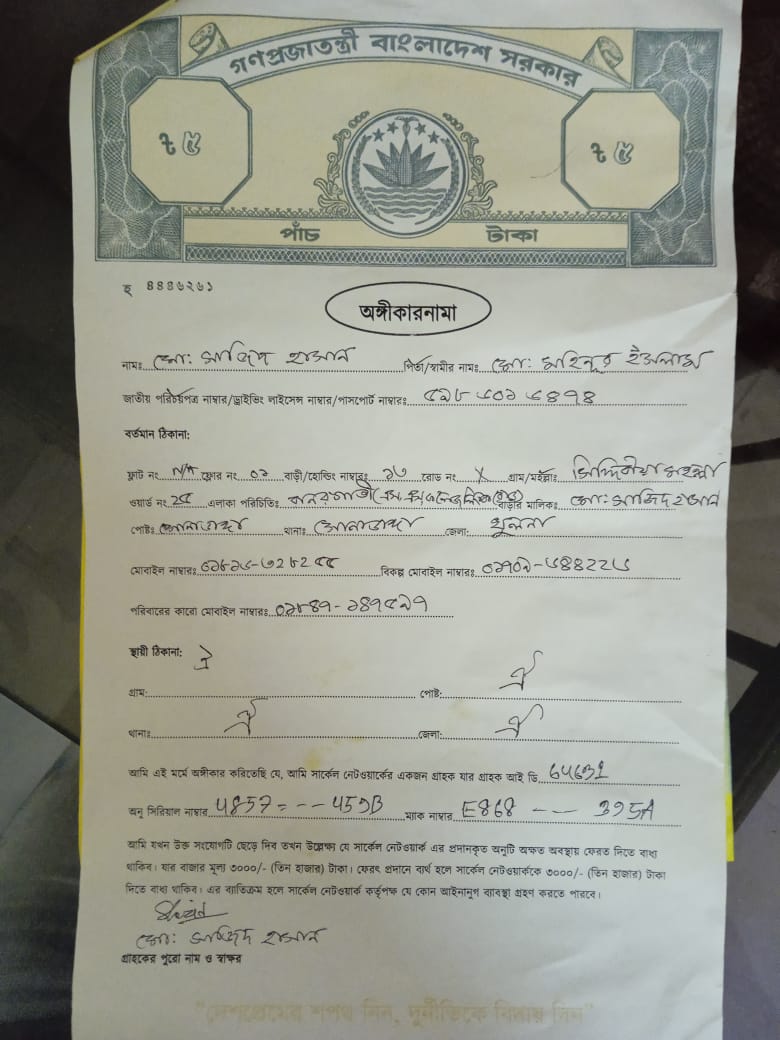 গণপ্রজাতন্ত্রী বাংলাদেশ সরকার
৳ ৫ ৳ ৫
পাঁচ টাকা
হ ৪৪4৬২৬১
অঙ্গীকারনামা
নামঃ মো: সাজিদ হাসান পিতা/স্বামীর নামঃ মো: মহিনুর ইসলাম
জাতীয় পরিচয়পত্র নাম্বার/ড্রাইভিং লাইসেন্স নাম্বার/পাসপোর্ট নাম্বারঃ
বর্তমান ঠিকানা:
ফ্লাট নং N/A ফ্লোর নং ০১ বাড়ী/হোল্ডিং নাম্বারঃ ১৩ রোড নং X গ্রাম/মহল্লাঃ সিদ্দিকীয়া মহল্লা
ওয়ার্ড নং ২৫ এলাকা পরিচিতিঃ বানরগাতী বাড়ীর মালিকঃ মো: সাজিদ হাসান
পোষ্টঃ সোনাডাঙ্গা থানাঃ সোনাডাঙ্গা জেলা: খুলনা
মোবাইল নাম্বারঃ বিকল্প মোবাইল নাম্বারঃ
পরিবারের কারো মোবাইল নাম্বারঃ
স্থায়ী ঠিকানা: ঐ
গ্রাম: পোষ্ট: ঐ
থানাঃ ঐ জেলা: ঐ
আমি এই মর্মে অঙ্গীকার করিতেছি যে, আমি সার্কেল নেটওয়ার্কের একজন গ্রাহক যার গ্রাহক আই ডি
অনু সিরিয়াল নাম্বার ম্যাক নাম্বার E868 --- 395A
আমি যখন উক্ত সংযোগটি ছেড়ে দিব তখন উল্লেক্ষ্য যে সার্কেল নেটওয়ার্ক এর প্রদানকৃত অনুটি অক্ষত অবস্থায় ফেরত দিতে বাধ্য
থাকিব। যার বাজার মূল্য ৩০০০/- (তিন হাজার) টাকা। ফেরৎ প্রদানে ব্যর্থ হলে সার্কেল নেটওয়ার্ককে ৩০০০/- (তিন হাজার) টাকা
দিতে বাধ্য থাকিব। এর ব্যতিক্রম হলে সার্কেল নেটওয়ার্ক কর্তৃপক্ষ যে কোন আইনানুগ ব্যাবস্থা গ্রহণ করতে পারবে।
মো: সাজিদ হাসান
গ্রাহকের পুরো নাম ও স্বাক্ষর
"দেশপ্রেমের শপথ নিন, দুর্নীতিকে বিদায় দিন"